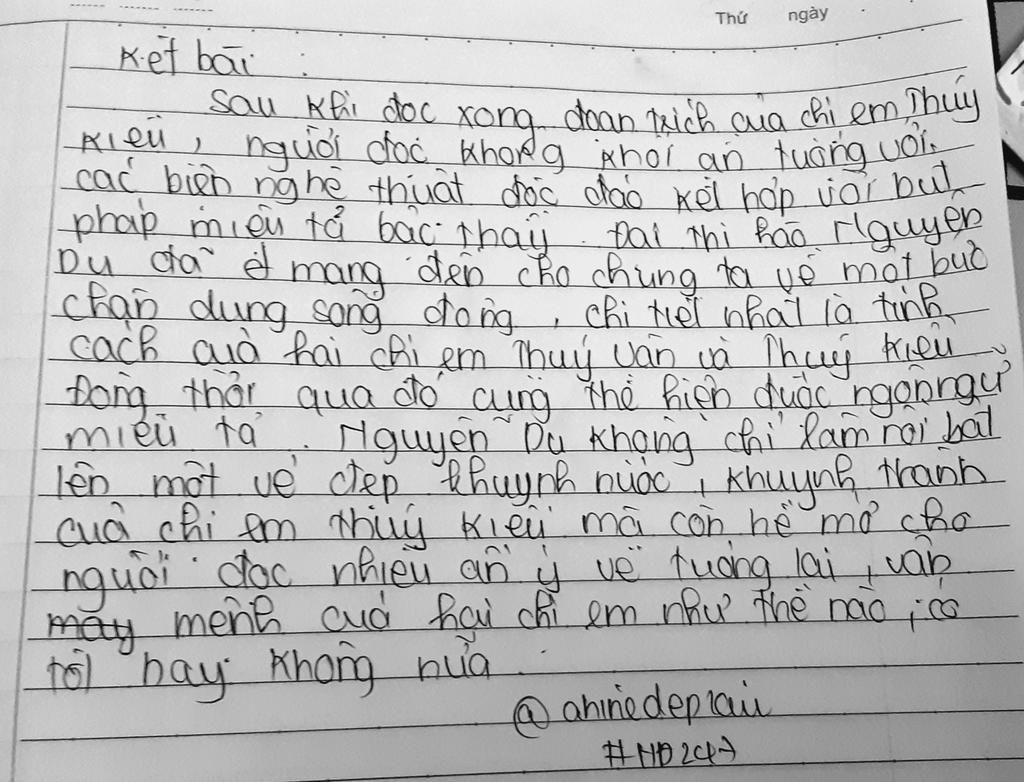 Thứ ngày
Kết bài :
Sau khi đọc xong đoạn trích của chị em Thúy
Kiều, người đọc không khỏi ấn tượng với
các biện nghệ thuật độc đáo kết hợp với bút
pháp miêu tả bậc thầy. Đại thi hào Nguyễn
Du đã mang đến cho chúng ta về một bức
chân dung sống động, chi tiết nhất là tính
cách của hai chị em Thuý Vân và Thuý Kiều
Đồng thời qua đó cũng thể hiện được ngôn ngữ
miêu tả. Nguyễn Du không chỉ làm nổi bật
lên một vẻ đẹp khuynh nước, khuynh thành
của chị em Thuý Kiều mà còn hé mở cho
người đọc nhiều ẩn ý về tương lai, vận
mệnh của hai chị em như thế nào, có
tốt hay không nữa.
@ahinedeptraii
#HD2k7